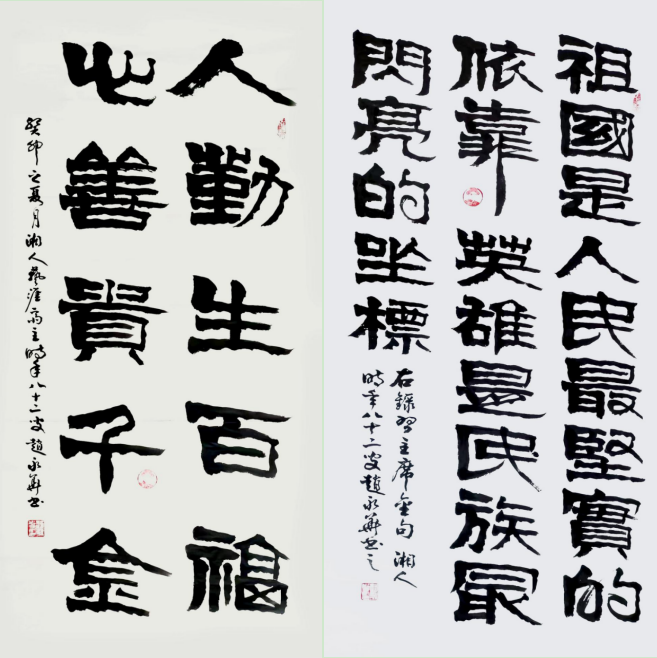 人勤生百福
心善貴千金
癸卯之夏月湘人藝涯齋主時年八十二叟趙永華書
祖國是人民最堅實的
依靠英雄是民族最
閃亮的坐標
右錄習主席金句湘人
時年八十二叟趙永華書之